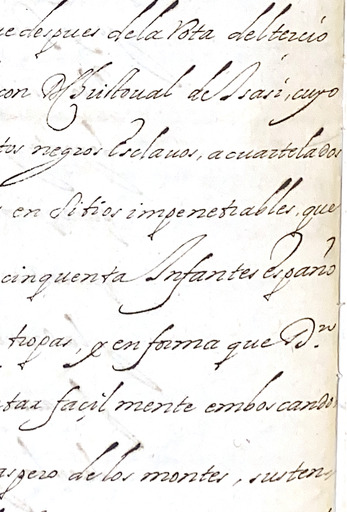 ue despues de la Rota del tercio
con D. Christoual de Isasi, cuyo
tos negros Esclauos, acuartelados
en Sitios impenetrables, que
cinquenta Infantes Españo
tropas, y en forma que D.ⁿ
tar façilmente emboscando
aspero de los montes, susten